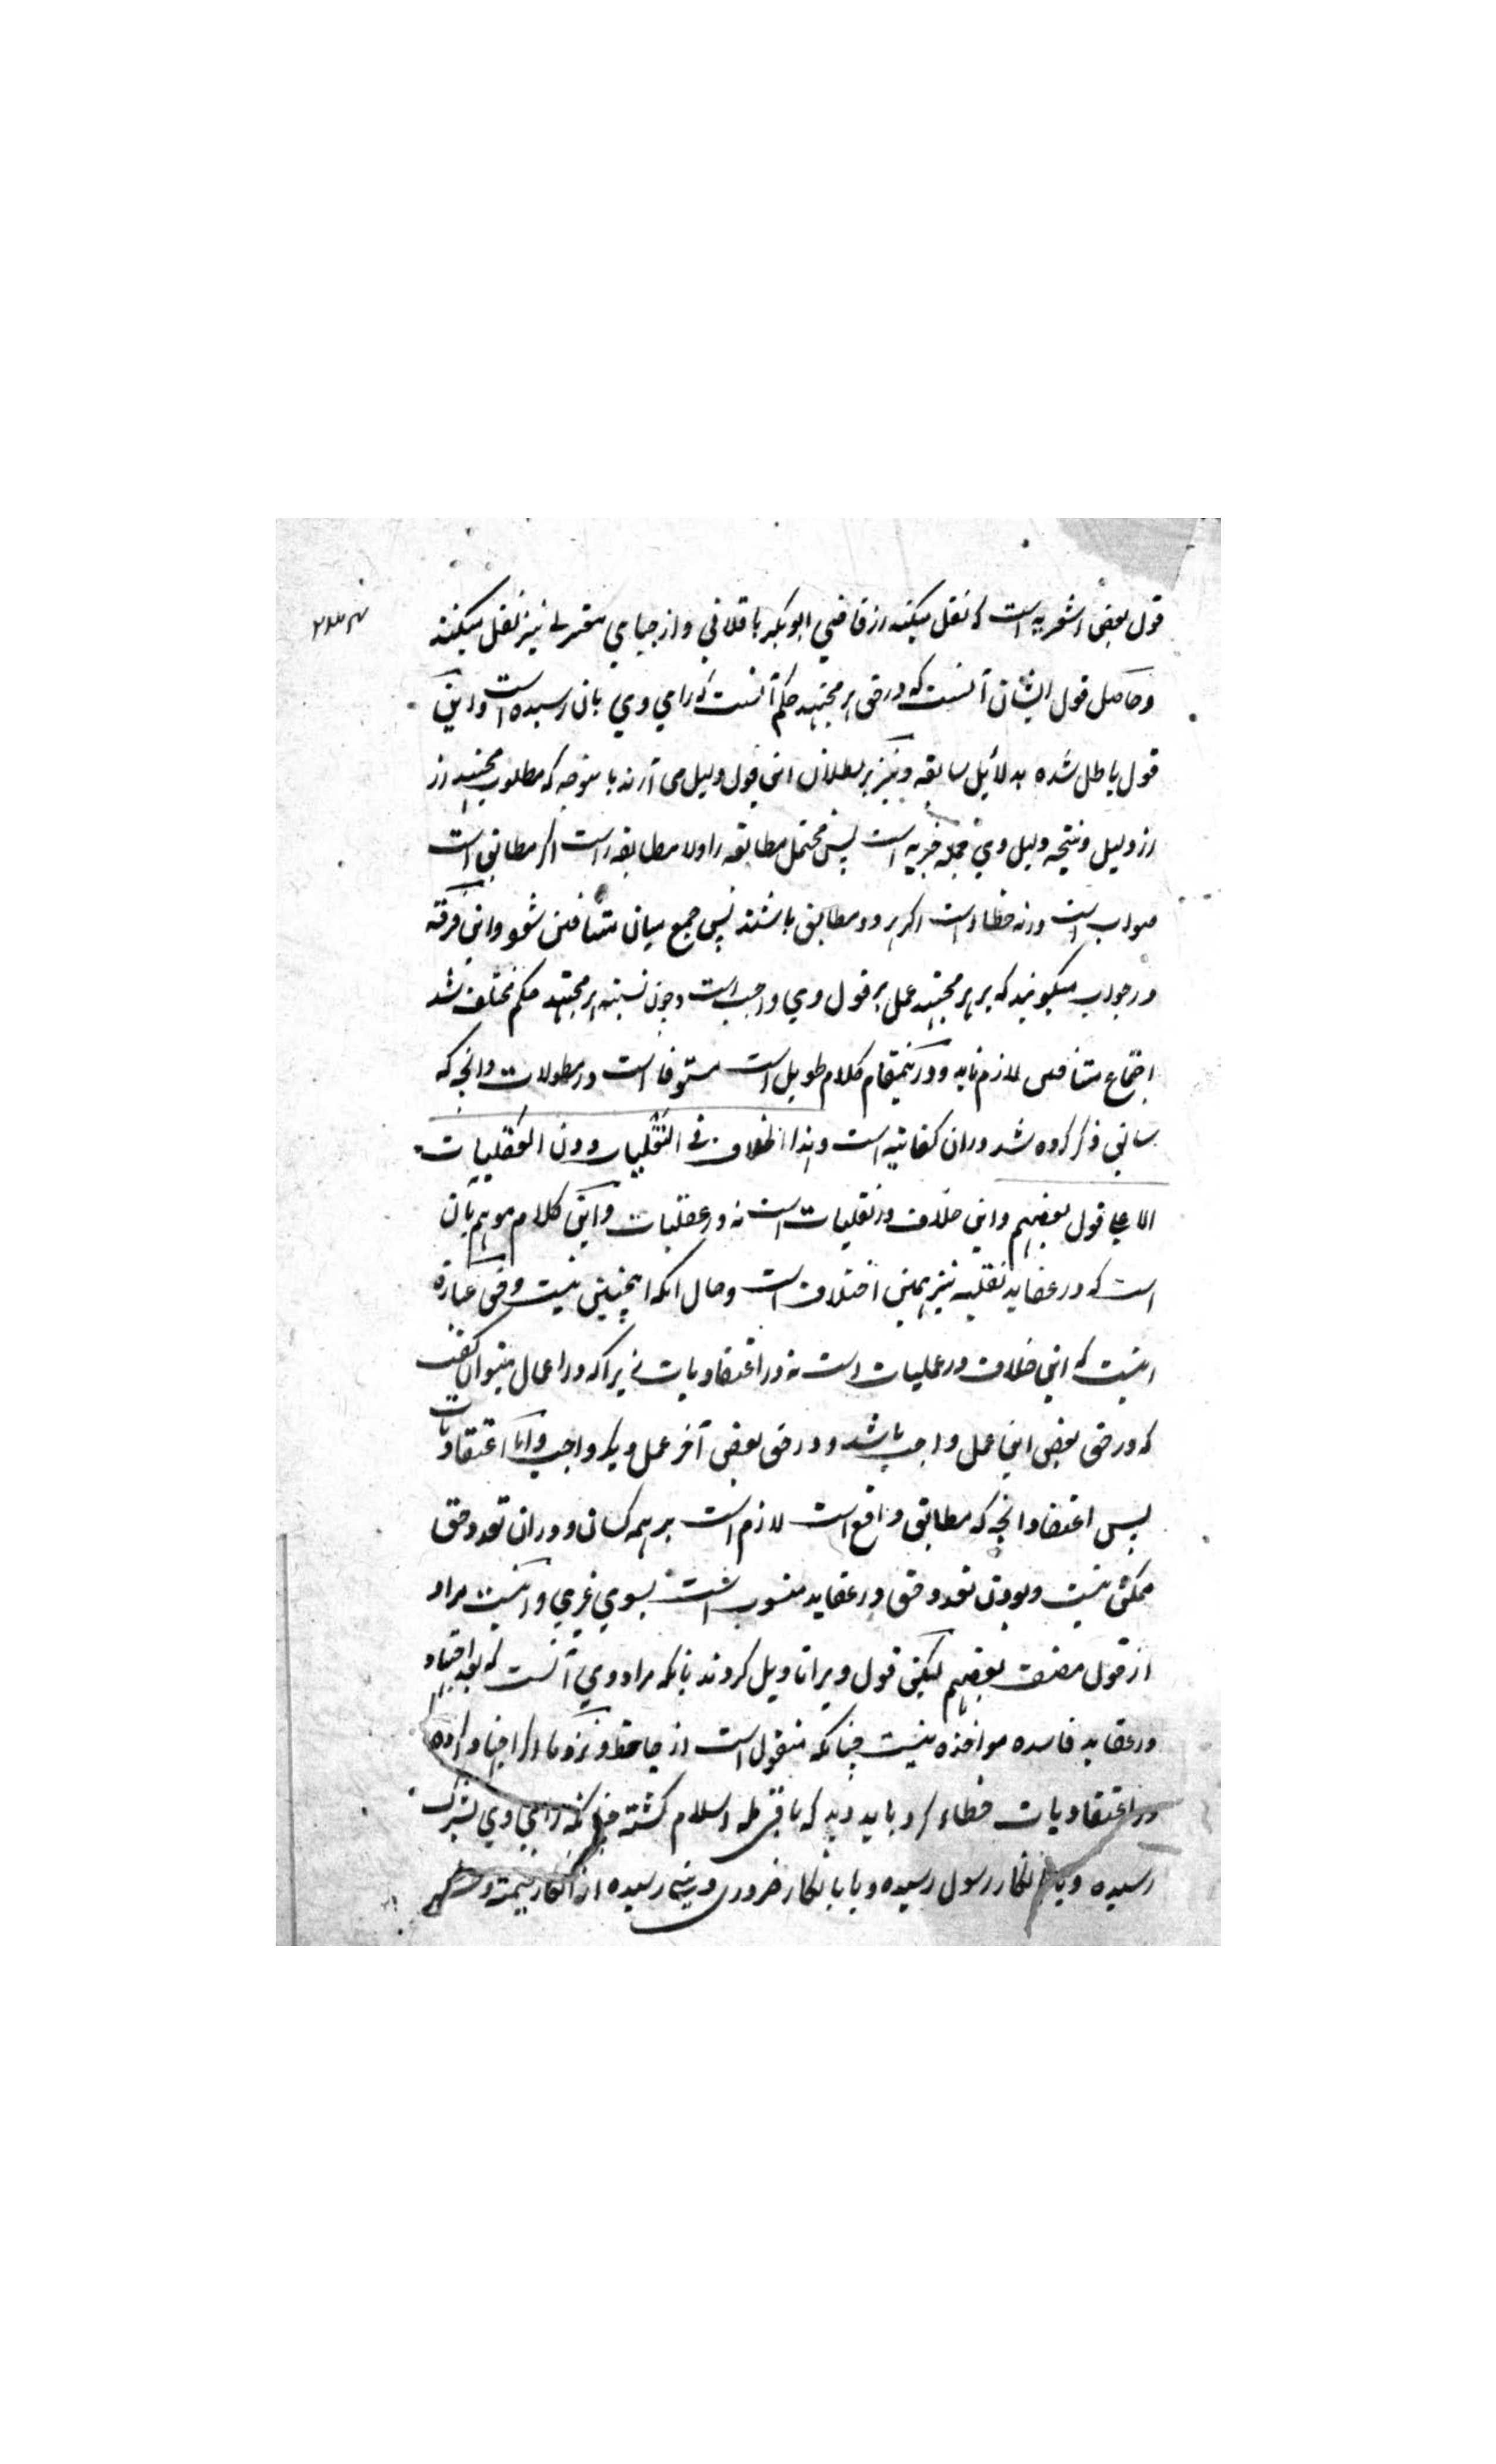 قول بعض اشعریه است که نقل میکنند از قاضی ابو بکر باقلانی و از جبایی معتزلی نیز نقل میکنند
و حاصل قول ایشان آنست که در حق هر مجتهد حکم آنست که رای وی بان رسیده است و این
قول باطل شده بدلائل سابقه و نیز بر بطلان این قول دلیل می آرند باینوجه که مطلوب مجتهد از
از دلیل و نتیجه دلیل وی جمله خبریه است پس محتمل مطابقه را و لا مطابقه راست اگر مطابق است
صواب است ورنه خطاء است اگر هر دو مطابق باشند پس جمع میان متنافیین شود و این فرقه
در جواب میگویند که بر هر مجتهد عمل بر قول وی واجب است و چون نسبته هر مجتهد حکم مختلف شد
اجتماع متنافیین لازم نیاید و درینمقام کلام طویل است مستوفا است در مطولات و انچه که
ساتی ذکر کرده شد دران کفایتیه است وهذا الخلاف فی النقلیات دون العقلیات
الا علی قول بعضهم و این خلاف در نقلیات است نه در عقلیات و این کلام موهم بان
است که در عقاید نقلیه نیز همین اختلاف است و حال انکه اینچنین نیست و حق عبارة
اینست که این خلاف در عملیات است نه در اعتقادیات زیراکه در اعمال میتوان گفت
که در حق بعض این عمل واجب باشد و در حق بعض آخر عمل دیگر واجب و اما اعتقادیات
پس اعتقاد انچه که مطابق واقع است لازم است بر همه کسان و دران تعدد حق
ممکن نیست و بودن تعدد حق در عقاید منسوب است بسوی عنبری و اینست مراد
از قول مصنف بعضهم لیکن قول ویرا تاویل کردند بانکه مراد وی آنست که بعد اجتهاد
در عقاید فاسده مواخذه نیست چنانکه منقول است از جاحظ و نزد ما اگر اجتهاد کرده
در اعتقادیات خطاء کرد باید دید که نافی مله اسلام گشته چنانکه رای وی بشرک
رسیده و یا بانکار رسول رسیده و یا بانکار ضروری دینی رسیده از انکار